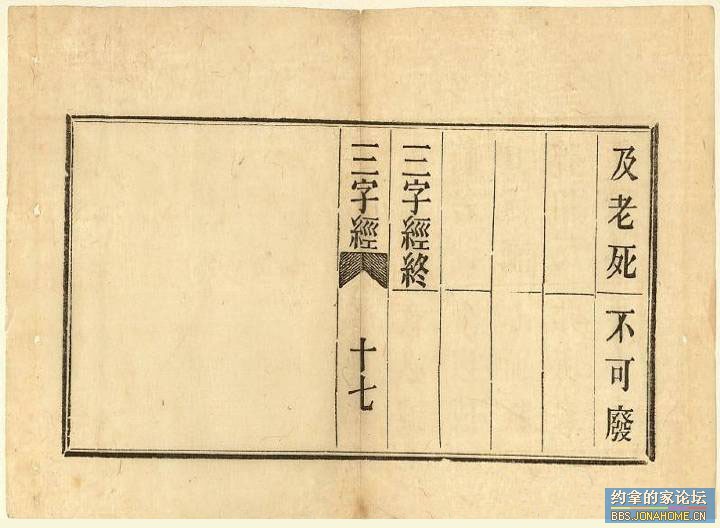 及老死 不可廢
三字經終
三字經 十七
约拿的家论坛
BBS.JONAHOME.CN